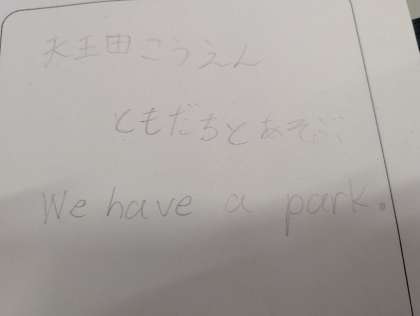 天王田こうえん
ともだちとあそぶ
We have a park.